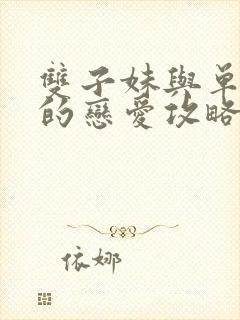 雙子妹與單
的戀愛攻略
依娜